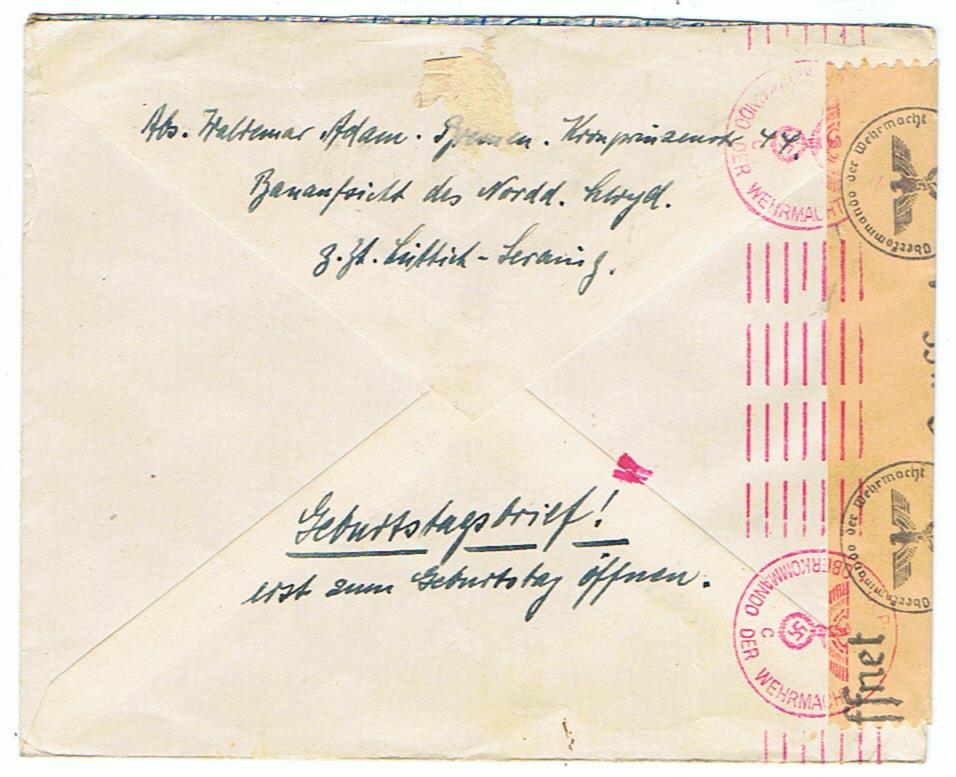 Abs. Waldemar Adam. Bremen. Kronprinzenstr 44.
Bauaufsicht des Nordd. Lloyd.
z. Zt. Lüttich-Seraing.
Geburtstagsbrief!
erst zum Geburtstag öffnen.
OBERKOMMANDO DER WEHRMACHT
C
Oberkommando der Wehrmacht
Oberkommando der Wehrmacht
OBERKOMMANDO DER WEHRMACHT
C
ffnet